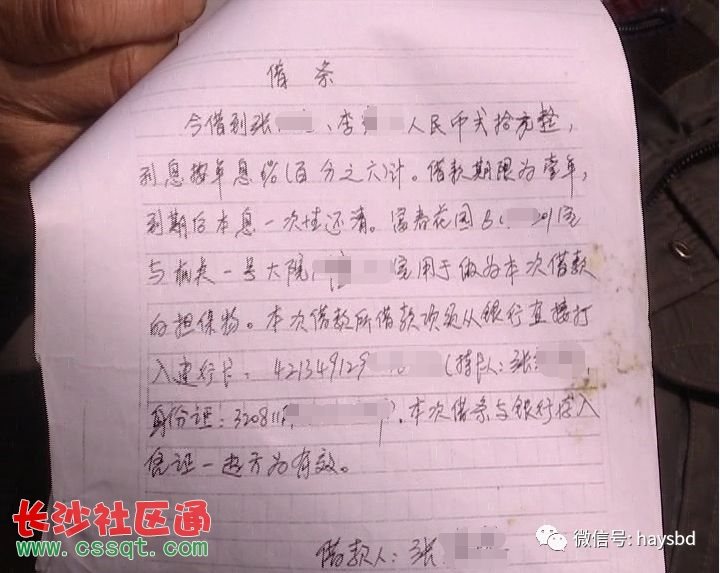 借条
今借到张 、李 人民币弍拾万整,
利息按年息6%(百分之六)计。借款期限为壹年,
到期后本息一次性还清。富春花园B 201室
与机关一号大院 室用于做为本次借款
的担保物。本次借款所借款项须从银行直接打
入建行卡: 421349129 (持卡人:张 ,
身份证: 320811 ),本次借条与银行存入
凭证一起方为有效。
借款人:张
长沙社区通
www.cssqt.com
微信号: haysbd